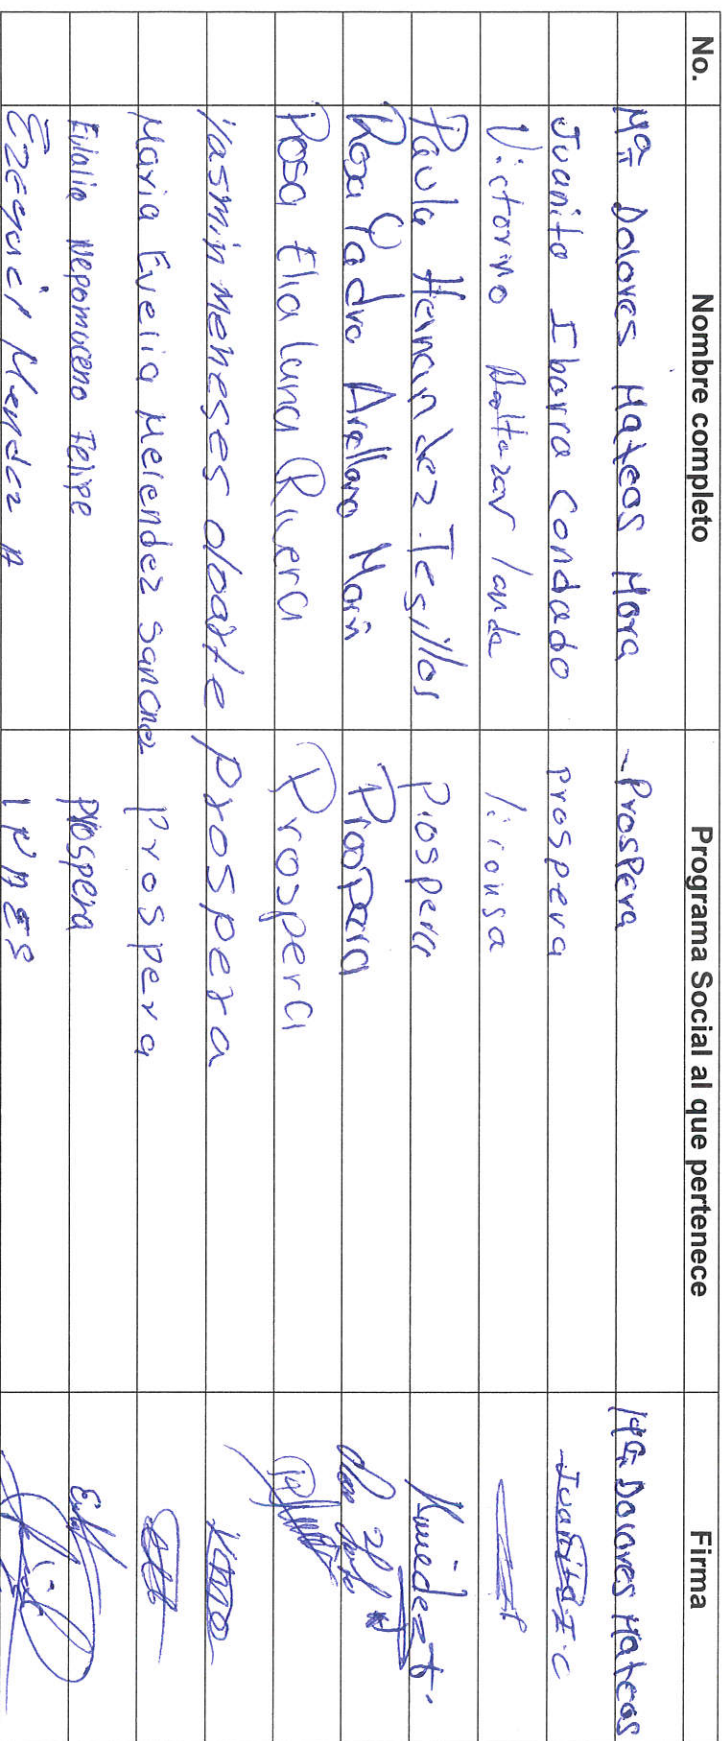 No. Nombre completo Programa Social al que pertenece Firma
Ma Dolores Mateos Mora - Prospera Ma Dolores Mateos
Juanita Ibarra Condado prospera Juanita I. C
Victorino Baltazar Landa Liconsa
Paula Hernandez Tesillos Prospera
Rosa Yadra Arellano Marin Prospera
Rosa Elia Luna Rivera Prospera
Yasmin Meneses oloarte Prospera
Maria Evelia Melendez Sanchez Prospera
Eulalia Nepomuceno Felipe Prospera
Ezequiel Mendez